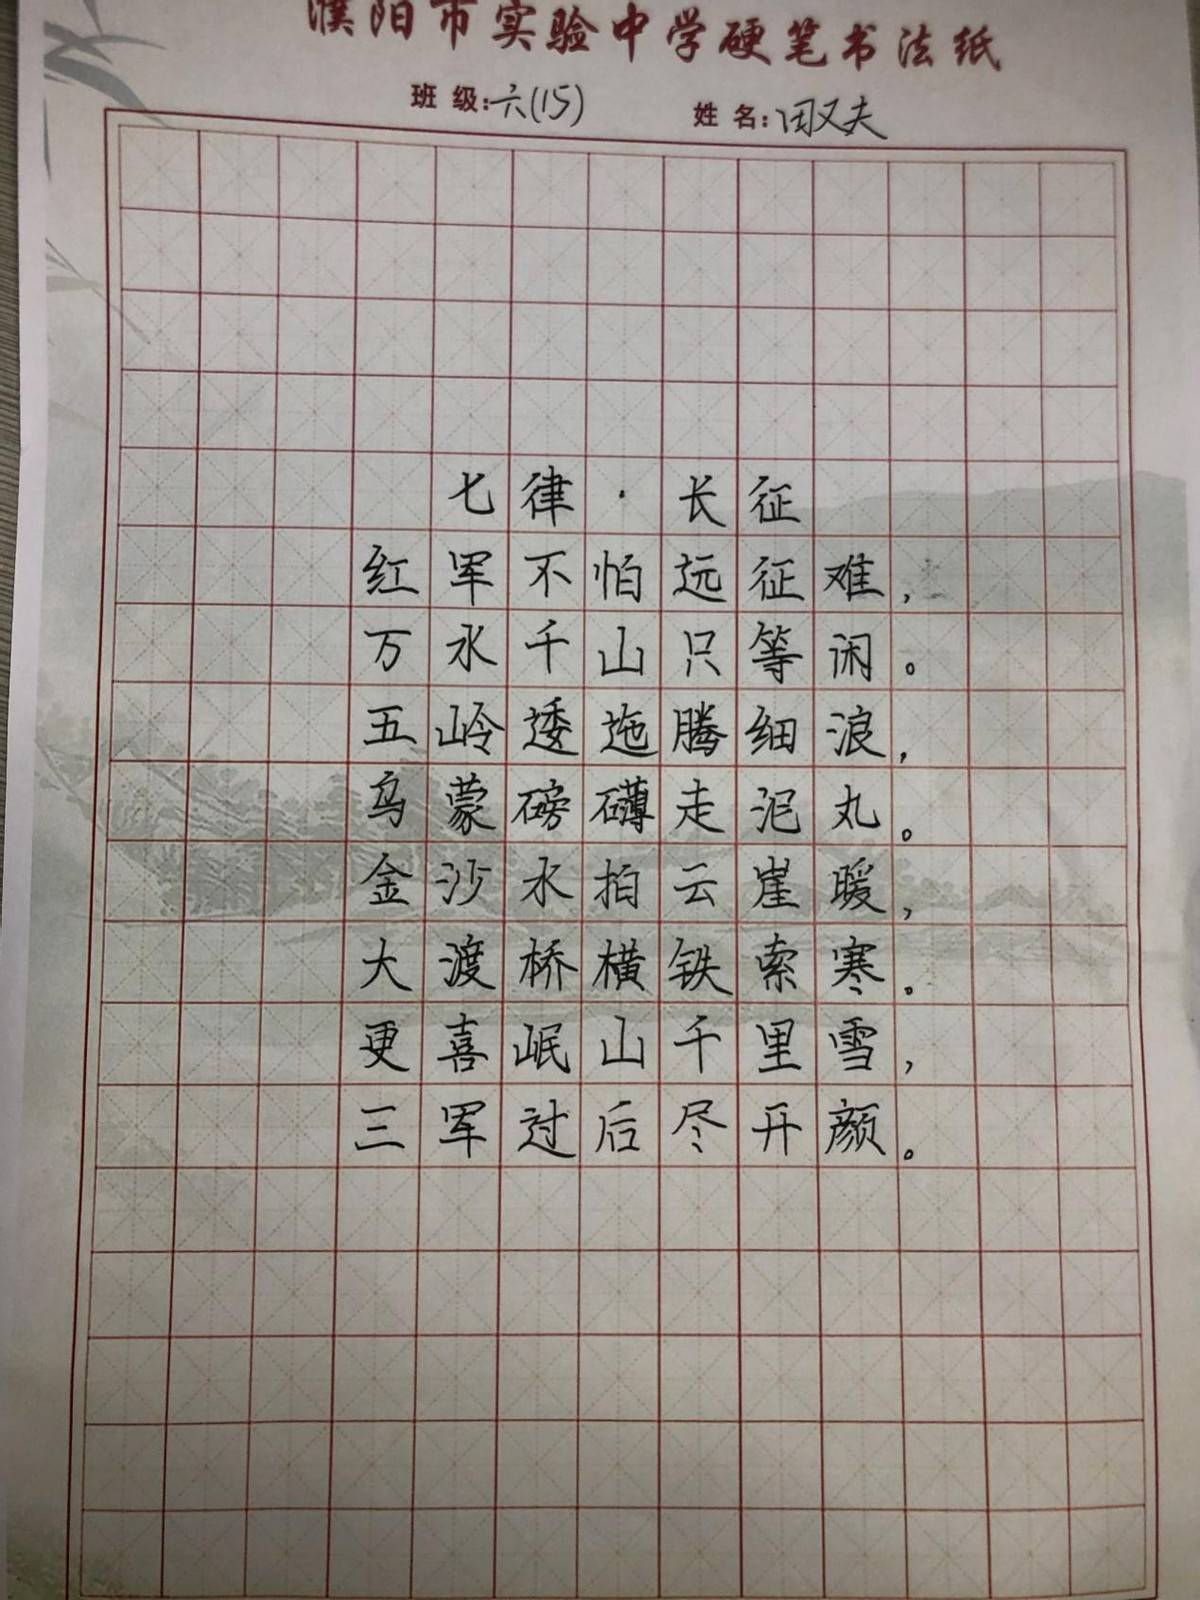 濮阳市实验中学硬笔书法纸
班级:六(15) 姓名:田又夫
七律·长征
红军不怕远征难,
万水千山只等闲。
五岭逶迤腾细浪,
乌蒙磅礴走泥丸。
金沙水拍云崖暖,
大渡桥横铁索寒。
更喜岷山千里雪,
三军过后尽开颜。